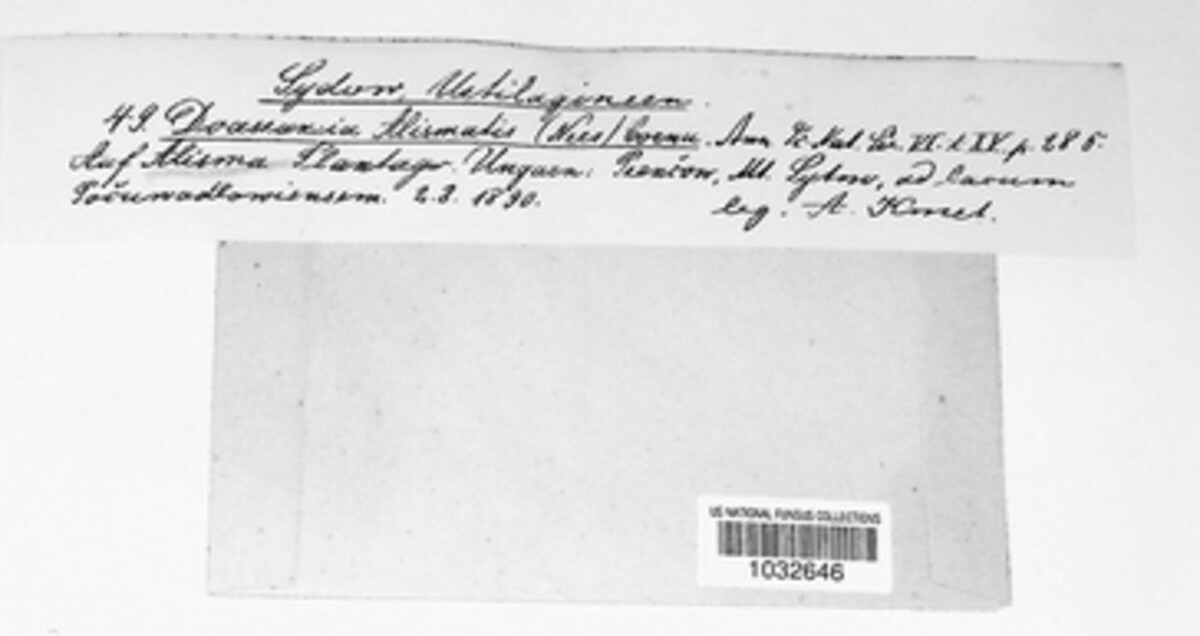 Sydow, Ustilagineen.
49. Doassansia Alismatis (Nees) Cornu. Ann. Sc. Nat. Sér. VI. t. XV. p. 285.
Auf Alisma Plantago. Ungarn: Prenčow, Mt. Sytno, ad lacum
Počuwadlowiensem. 2.8. 1890. leg. A. Kmet.
US NATIONAL FUNGUS COLLECTIONS
1032646